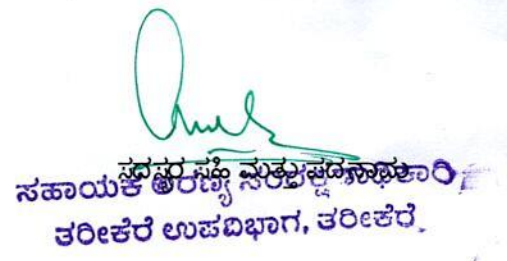 ಸದಸ್ಯರ ಸಹಿ ಮತ್ತು ಪದನಾಮ
ಸಹಾಯಕ ಅರಣ್ಯ ಸಂರಕ್ಷಣಾಧಿಕಾರಿ
ತರೀಕೆರೆ ಉಪವಿಭಾಗ, ತರೀಕೆರೆ.